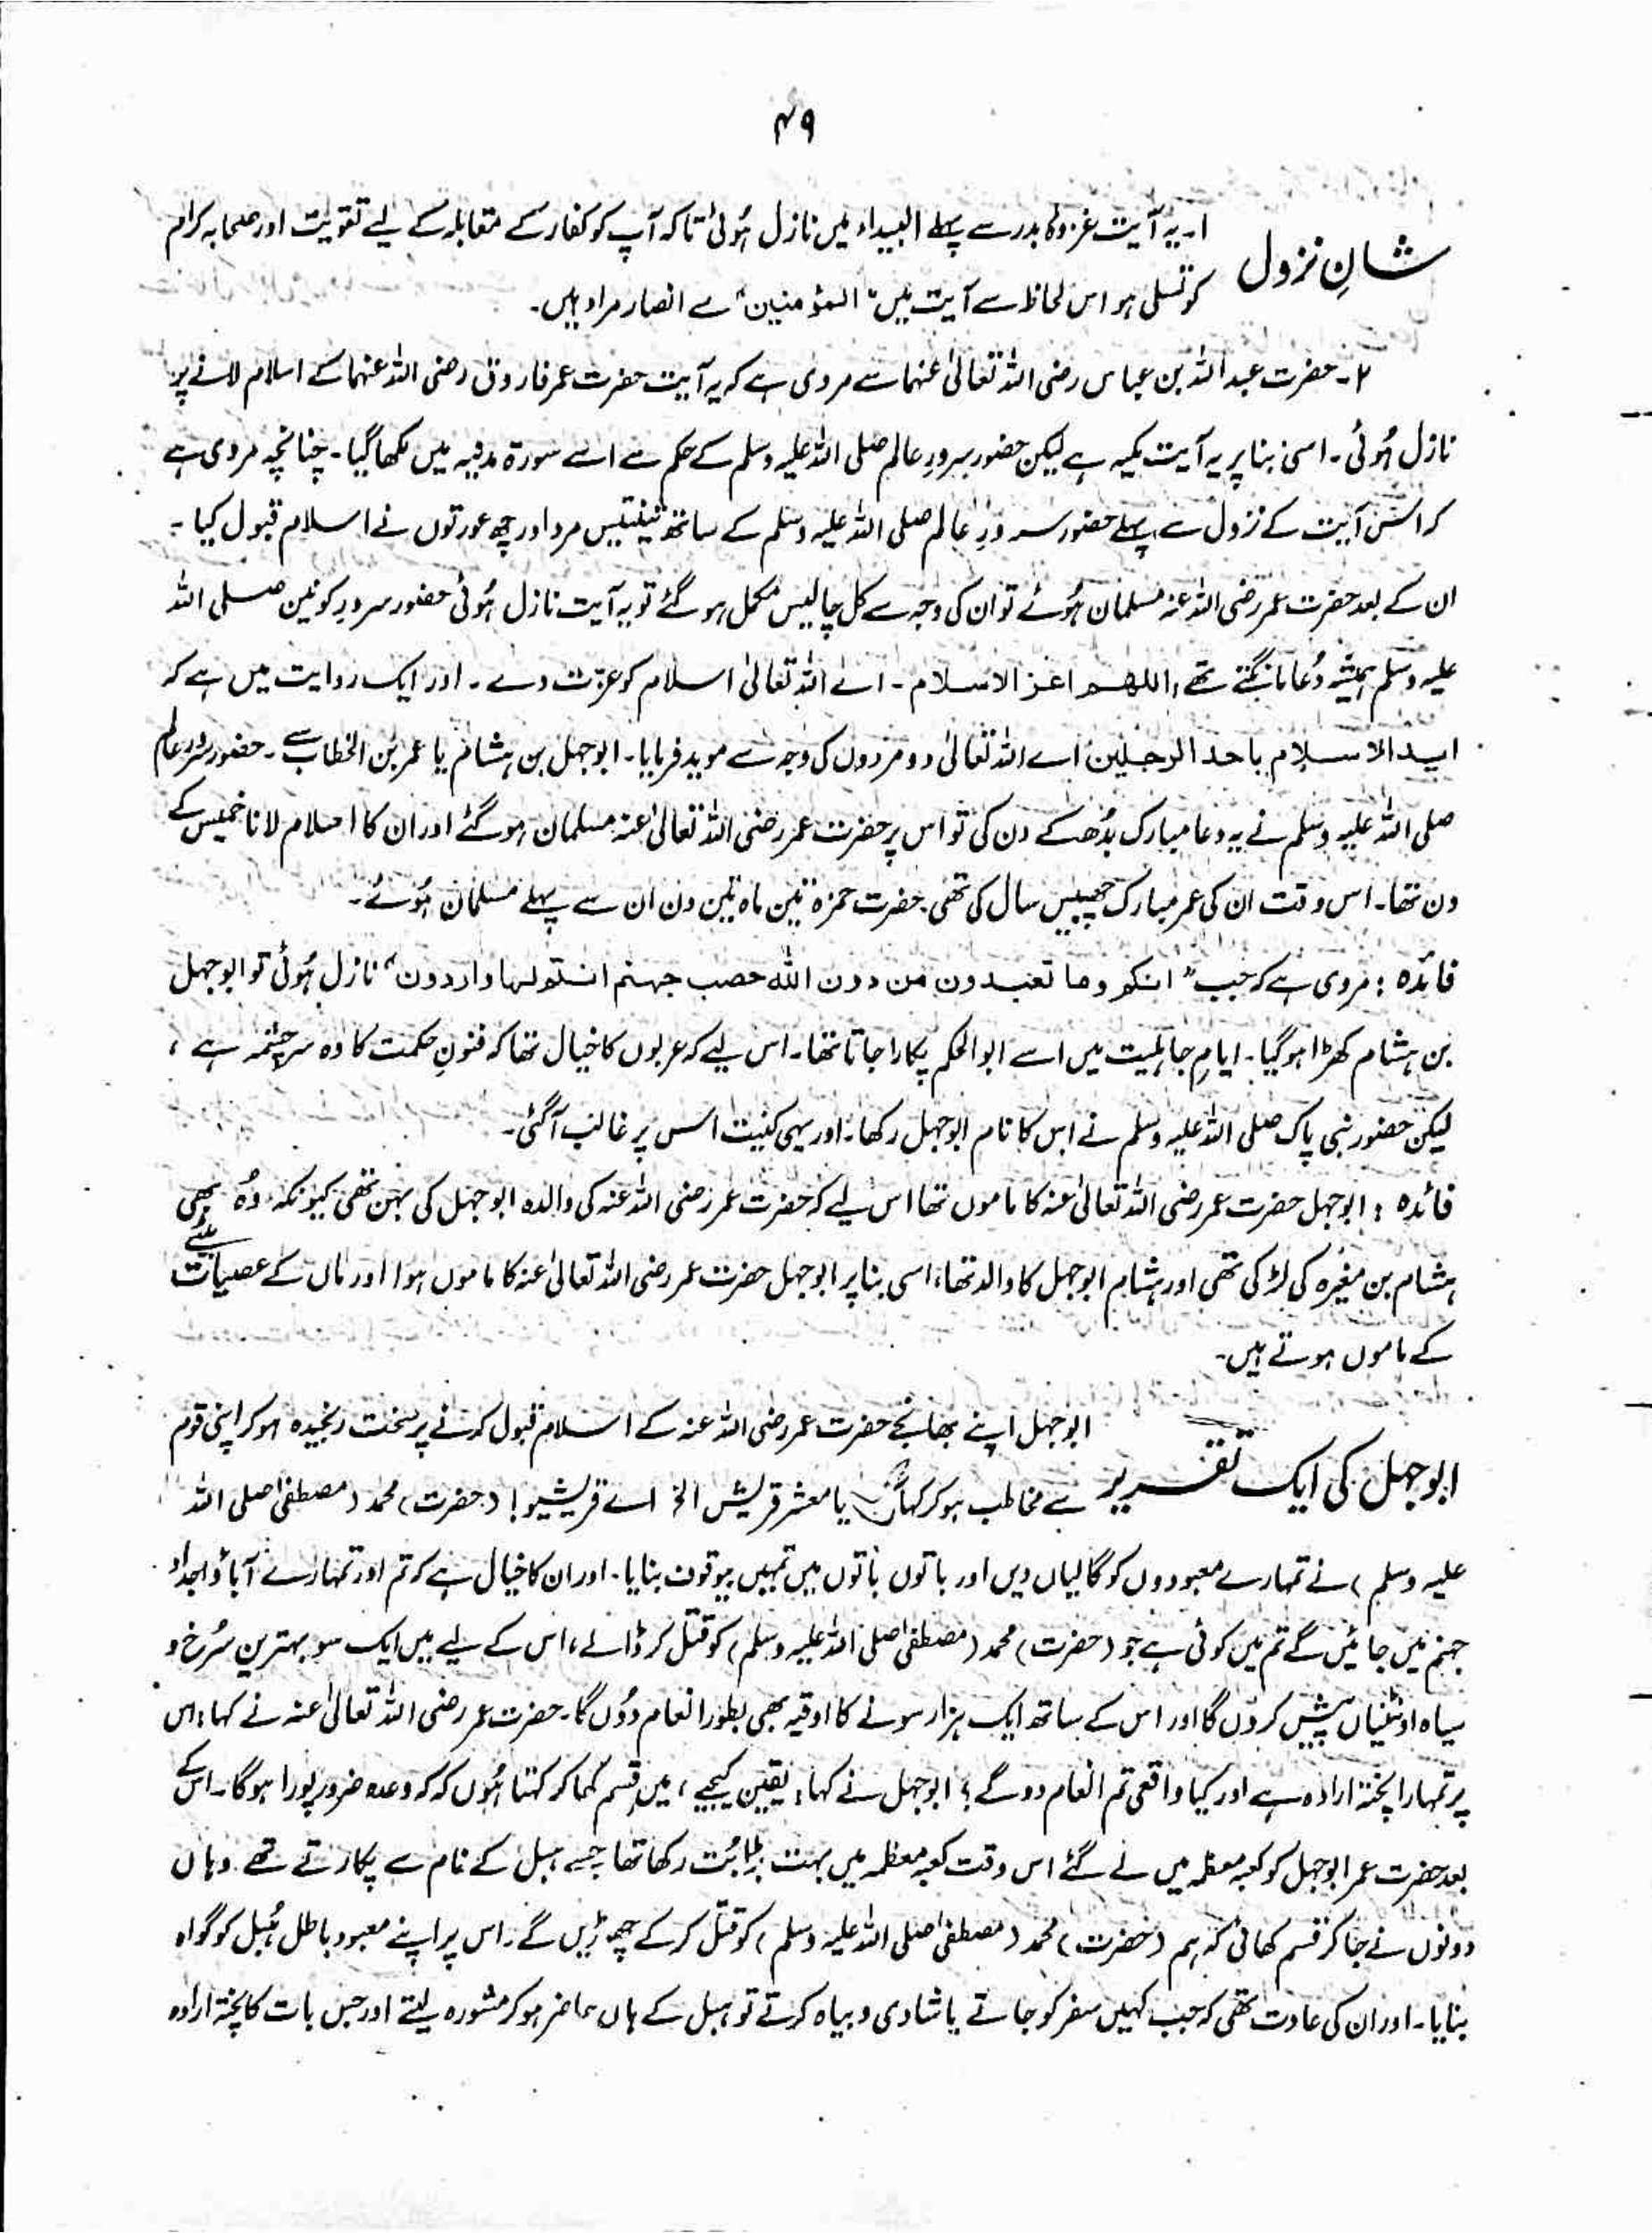 ۴۹
شانِ نزول
۱۔ یہ آیت غزوۂ بدر سے پہلے البیداء میں نازل ہُوئی تاکہ آپ کو کفار کے مقابلہ کے لیے تقویت اور صحابہ کرام
کو تسلی ہو اس لحاظ سے آیت میں "المؤمنین" سے انصار مراد ہیں۔
۲۔ حضرت عبد اللہ بن عباس رضی اللہ تعالیٰ عنہما سے مروی ہے کہ یہ آیت حضرت عمر فاروق رضی اللہ عنہما کے اسلام لانے پر
نازل ہُوئی۔ اسی بنا پر یہ آیت مکیہ ہے لیکن حضور سرورِ عالم صلی اللہ علیہ وسلم کے حکم سے اسے سورۃ مدنیہ میں لکھا گیا۔ چنانچہ مروی ہے
کہ اس آیت کے نزول سے پہلے حضور سرورِ عالم صلی اللہ علیہ وسلم کے ساتھ تینتیس مرد اور چھ عورتوں نے اسلام قبول کیا۔
ان کے بعد حضرت عمر رضی اللہ عنہ مسلمان ہُوئے تو ان کی وجہ سے کل چالیس مکمل ہو گئے تو یہ آیت نازل ہُوئی حضور سرورِ کونین صلی اللہ
علیہ وسلم ہمیشہ دُعا مانگتے تھے، اللھم اعز الاسلام۔ اے اللہ تعالیٰ اسلام کو عزت دے۔ اور ایک روایت میں ہے کہ
ایدالاسلام باحد الرجلین اے اللہ تعالیٰ دو مردوں کی وجہ سے موید فرمایا۔ ابوجہل بن ہشام یا عمر بن الخطاب سے۔ حضور سرورِ عالم
صلی اللہ علیہ وسلم نے یہ دعا مبارک بُدھ کے دن کی تو اس پر حضرت عمر رضی اللہ تعالیٰ عنہ مسلمان ہو گئے اور ان کا اسلام لانا خمیس کے
دن تھا۔ اس وقت ان کی عمر مبارک چھبیس سال کی تھی۔ حضرت حمزہ تین ماہ تین دن ان سے پہلے مسلمان ہُوئے۔
فائدہ : مروی ہے کہ جب "انکم وما تعبدون من دون اللہ حصب جہنم انتم لہا واردون" نازل ہُوئی تو ابوجہل
بن ہشام کھڑا ہو گیا۔ ایامِ جاہلیت میں اسے ابوالحکم پکارا جاتا تھا۔ اس لیے کہ عربوں کا خیال تھا کہ فنونِ حکمت کا وہ سرچشمہ ہے ،
لیکن حضور نبی پاک صلی اللہ علیہ وسلم نے اس کا نام ابوجہل رکھا، اور یہی کنیت اس پر غالب آگئی۔
فائدہ : ابوجہل حضرت عمر رضی اللہ تعالیٰ عنہ کا ماموں تھا اس لیے کہ حضرت عمر رضی اللہ عنہ کی والدہ ابوجہل کی بہن تھی کیونکہ وُہ بھی
ہشام بن مغیرہ کی لڑکی تھی اور ہشام ابوجہل کا والد تھا، اسی بنا پر ابوجہل حضرت عمر رضی اللہ تعالیٰ عنہ کا ماموں ہوا اور ماں کے عصبات بیٹے
کے ماموں ہوتے ہیں۔
ابوجہل کی ایک تقریر
ابوجہل اپنے بھانجے حضرت عمر رضی اللہ عنہ کے اسلام قبول کرنے پر سخت رنجیدہ ہو کر اپنی قوم
سے مخاطب ہو کر کہا یا معشر قریش الخ اے قریشیو! (حضرت) محمد (مصطفیٰ صلی اللہ
علیہ وسلم) نے تمہارے معبودوں کو گالیاں دیں اور باتوں باتوں میں تمہیں بیوقوف بنایا۔ اور ان کا خیال ہے کہ تم اور تمہارے آباؤ اجداد
جہنم میں جائیں گے تم میں کوئی ہے جو (حضرت) محمد (مصطفیٰ صلی اللہ علیہ وسلم) کو قتل کر ڈالے، اس کے لیے میں ایک سو بہترین سُرخ و
سیاہ اونٹنیاں پیش کروں گا اور اس کے ساتھ ایک ہزار سونے کا اوقیہ بھی بطور انعام دوں گا۔ حضرت عمر رضی اللہ تعالیٰ عنہ نے کہا: اس
پر تمہارا پختہ ارادہ ہے اور کیا واقعی تم انعام دو گے؟ ابوجہل نے کہا: یقین کیجیے، میں قسم کھا کر کہتا ہُوں کہ کہ وعدہ ضرور پورا ہوگا۔ اس کے
بعد حضرت عمر ابوجہل کو کعبہ معظمہ میں لے گئے اس وقت کعبہ معظمہ میں بہت بڑا بُت رکھا تھا جسے ہبل کے نام سے پکارتے تھے۔ وہاں
دونوں نے جا کر قسم کھائی کہ ہم (حضرت) محمد (مصطفیٰ صلی اللہ علیہ وسلم) کو قتل کر کے چھوڑیں گے۔ اس پر اپنے معبود باطل ہُبل کو گواہ
بنایا۔ اور ان کی عادت تھی کہ جب کہیں سفر کو جاتے یا شادی و بیاہ کرتے تو ہبل کے ہاں حاضر ہو کر مشورہ لیتے اور جس بات کا پختہ ارادہ